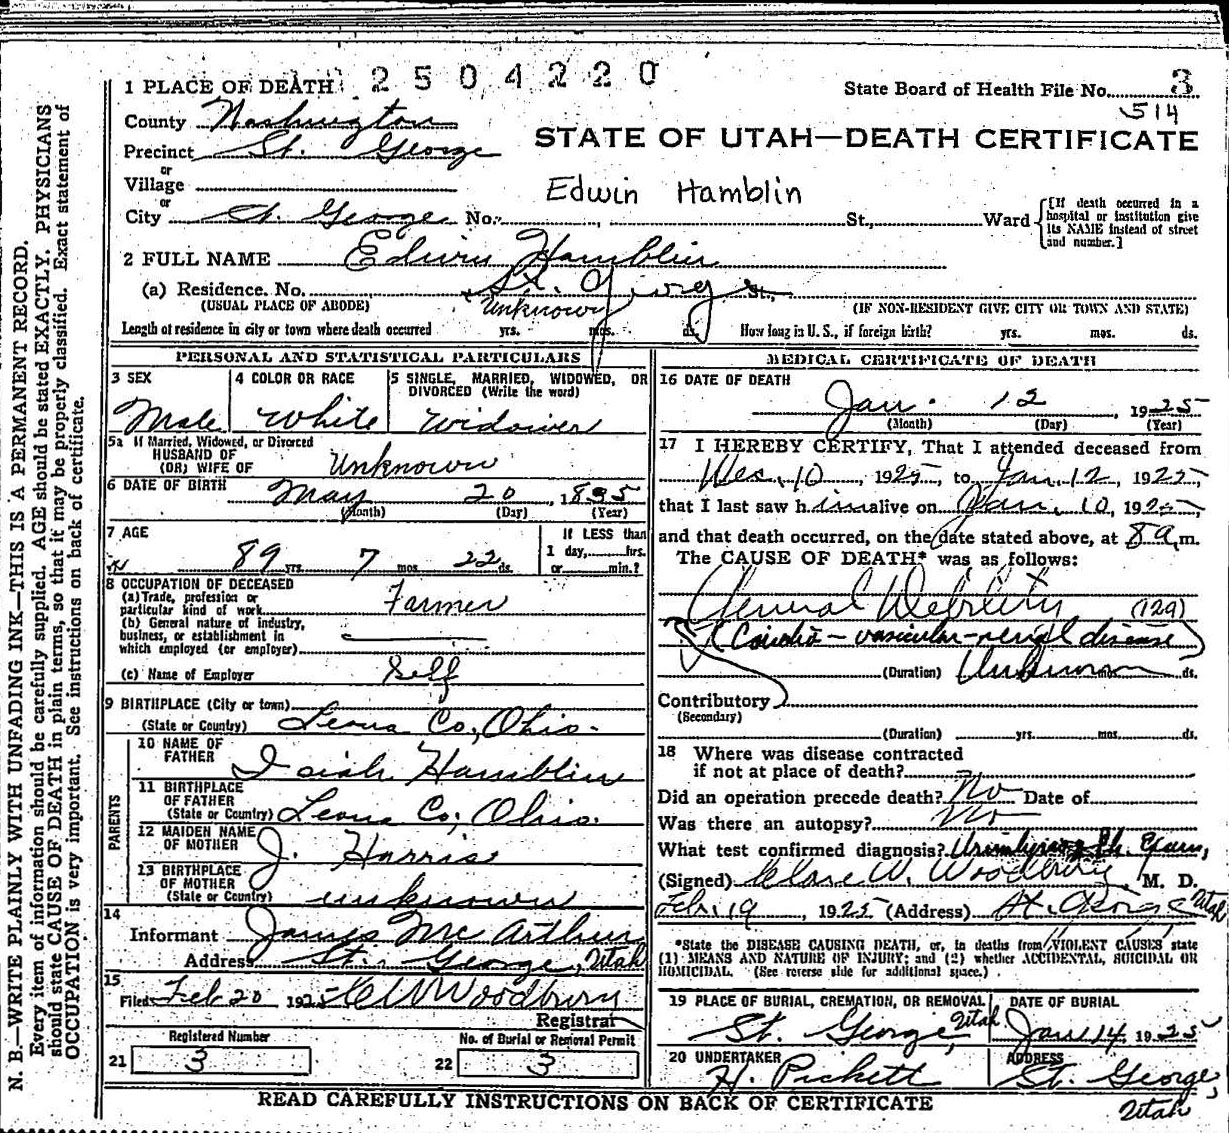 1 PLACE OF DEATH 2504220
State Board of Health File No. 3
514
County Washington
STATE OF UTAH—DEATH CERTIFICATE
Precinct St. George
or
Village
Edwin Hamblin
or
City St. George No. St., Ward
[If death occurred in a hospital or institution give its NAME instead of street and number.]
2 FULL NAME Edwin Hamblin
(a) Residence. No. St. George St.,
(USUAL PLACE OF ABODE) (IF NON-RESIDENT GIVE CITY OR TOWN AND STATE)
Length of residence in city or town where death occurred Unknown yrs. mos. ds. How long in U. S., if foreign birth? yrs. mos. ds.
PERSONAL AND STATISTICAL PARTICULARS
3 SEX
Male
4 COLOR OR RACE
White
5 SINGLE, MARRIED, WIDOWED, OR
DIVORCED (Write the word)
Widower
5a If Married, Widowed, or Divorced
HUSBAND OF
(OR) WIFE OF Unknown
6 DATE OF BIRTH May 20, 1835
(Month) (Day) (Year)
7 AGE
89 yrs. 7 mos. 22 ds.
If LESS than
1 day, hrs.
or min.?
8 OCCUPATION OF DECEASED
(a) Trade, profession or
particular kind of work Farmer
(b) General nature of industry,
business, or establishment in
which employed (or employer)
(c) Name of Employer Self
9 BIRTHPLACE (City or town)
(State or Country) Leona Co., Ohio.
PARENTS
10 NAME OF
FATHER Isiah Hamblin
11 BIRTHPLACE
OF FATHER
(State or Country) Leona Co; Ohio.
12 MAIDEN NAME
OF MOTHER J. Harris
13 BIRTHPLACE
OF MOTHER
(State or Country) unknown
14
Informant James Mc Arthur
Address St. George, Utah
15
Filed Feb 20 1925 C W Woodbury
Registrar
Registered Number
21 3
No. of Burial or Removal Permit
22 3
MEDICAL CERTIFICATE OF DEATH
16 DATE OF DEATH
Jan. 12, 1925
(Month) (Day) (Year)
17 I HEREBY CERTIFY, That I attended deceased from
Dec. 10, 1925, to Jan. 12, 1925,
that I last saw him alive on Jan. 10, 1925,
and that death occurred, on the date stated above, at 8 a. m.
The CAUSE OF DEATH* was as follows:
General Debility (129)
(Cardio-vascular-renal disease)
(Duration) Unknown mos. ds.
Contributory
(Secondary)
(Duration) yrs. mos. ds.
18 Where was disease contracted
if not at place of death?
Did an operation precede death? No Date of
Was there an autopsy? No
What test confirmed diagnosis? Urinalysis & Ph. Exam,
(Signed) Clare W. Woodbury, M. D.
Feb. 19, 1925 (Address) St. George Utah
*State the DISEASE CAUSING DEATH, or, in deaths from VIOLENT CAUSES, state
(1) MEANS AND NATURE OF INJURY; and (2) whether ACCIDENTAL, SUICIDAL OR
HOMICIDAL. (See reverse side for additional space.)
19 PLACE OF BURIAL, CREMATION, OR REMOVAL
St. George, Utah
DATE OF BURIAL
Jan 14 1925
20 UNDERTAKER
H. Pickett
ADDRESS
St. George,
Utah
READ CAREFULLY INSTRUCTIONS ON BACK OF CERTIFICATE
N. B.—WRITE PLAINLY WITH UNFADING INK—THIS IS A PERMANENT RECORD.
Every item of information should be carefully supplied. AGE should be stated EXACTLY. PHYSICIANS
should state CAUSE OF DEATH in plain terms, so that it may be properly classified. Exact statement of
OCCUPATION is very important. See instructions on back of certificate.